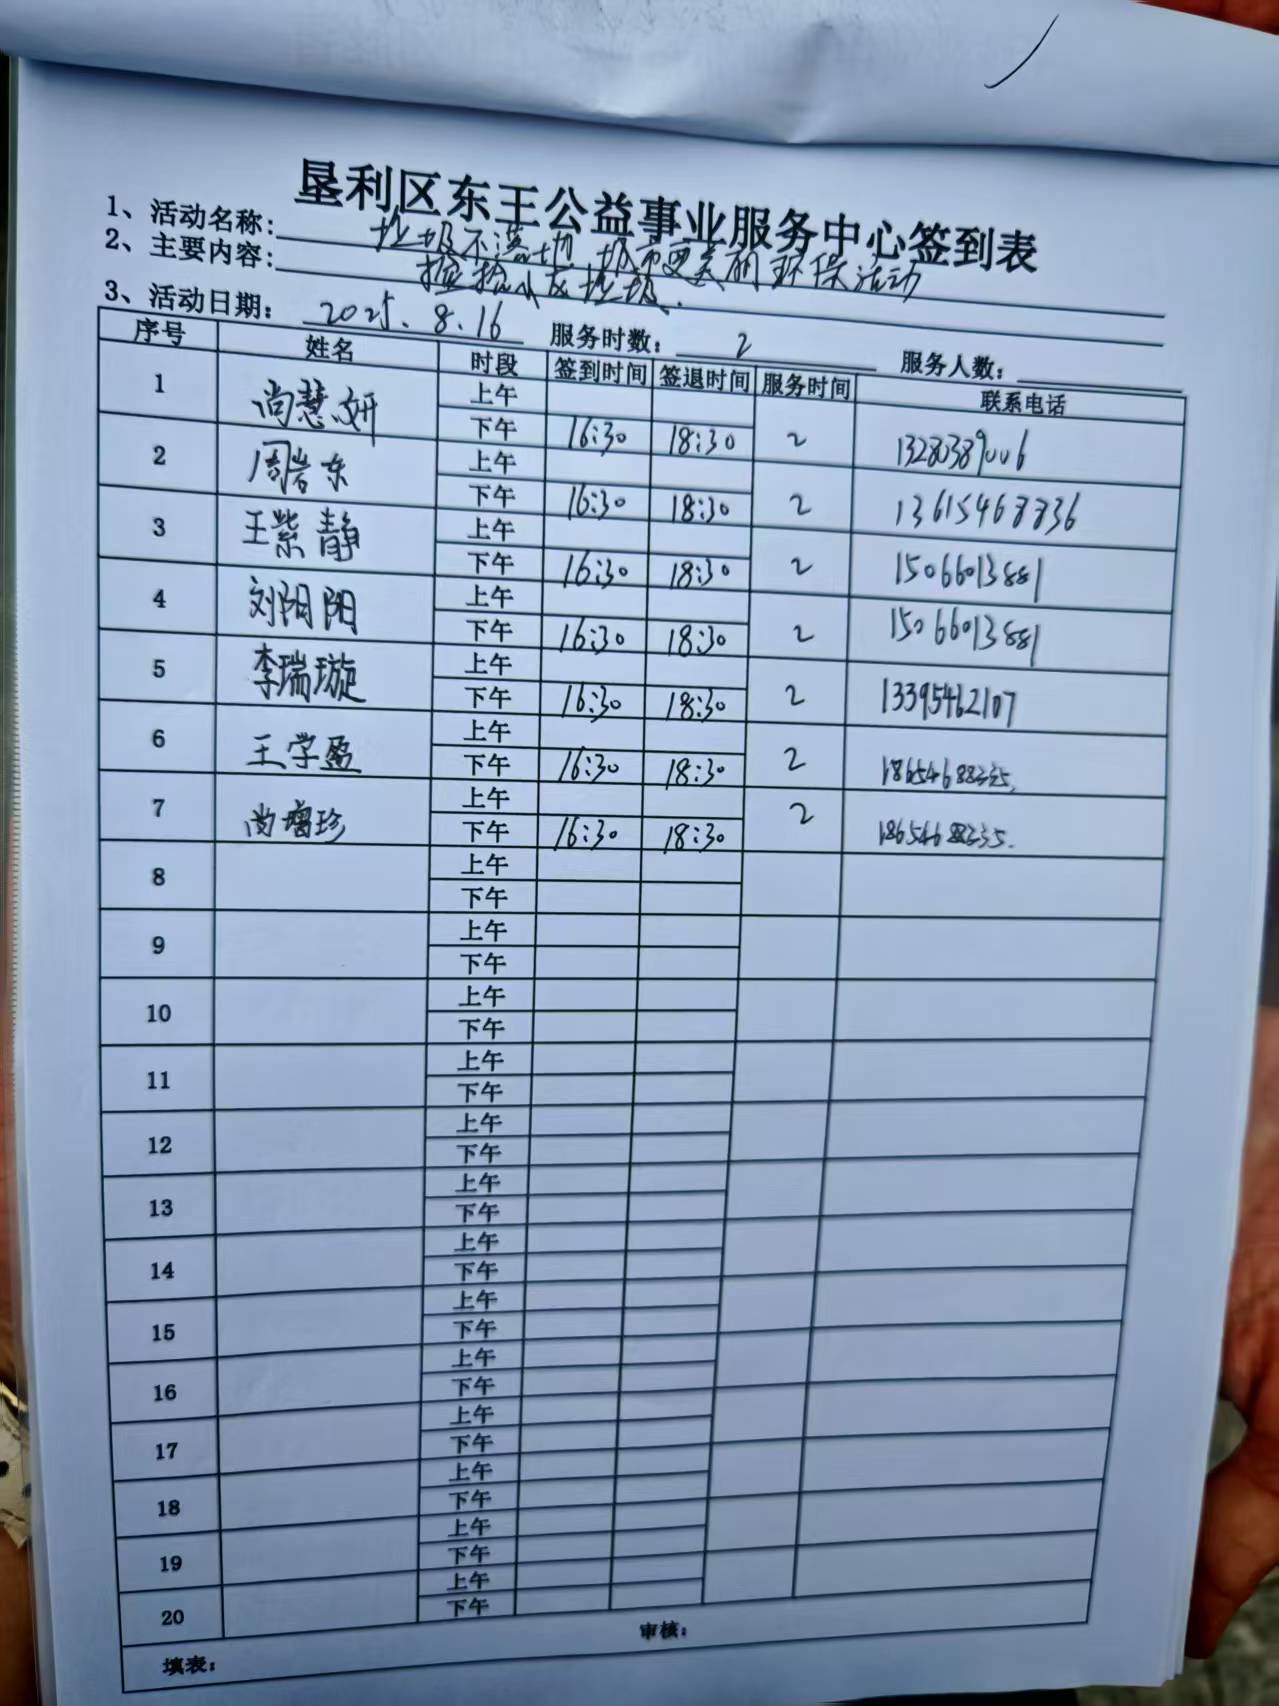 垦利区东王公益事业服务中心签到表
1、活动名称：垃圾不落地 城市更美丽 环保活动
2、主要内容：捡拾小广垃圾.
3、活动日期：2025.8.16 服务时数：2 服务人数：
序号 姓名 时段 签到时间 签退时间 服务时间 联系电话
1 尚慧妍 上午
下午 16:30 18:30 2 13280389006
2 周岩东 上午
下午 16:30 18:30 2 13615468836
3 王紫静 上午
下午 16:30 18:30 2 15066013881
4 刘阳阳 上午
下午 16:30 18:30 2 15066013881
5 李瑞璇 上午
下午 16:30 18:30 2 13395462107
6 王学盈 上午
下午 16:30 18:30 2 18654688335.
7 尚增珍 上午
下午 16:30 18:30 2 18654688335.
8 上午
下午
9 上午
下午
10 上午
下午
11 上午
下午
12 上午
下午
13 上午
下午
14 上午
下午
15 上午
下午
16 上午
下午
17 上午
下午
18 上午
下午
19 上午
下午
20 上午
下午
填表： 审核：